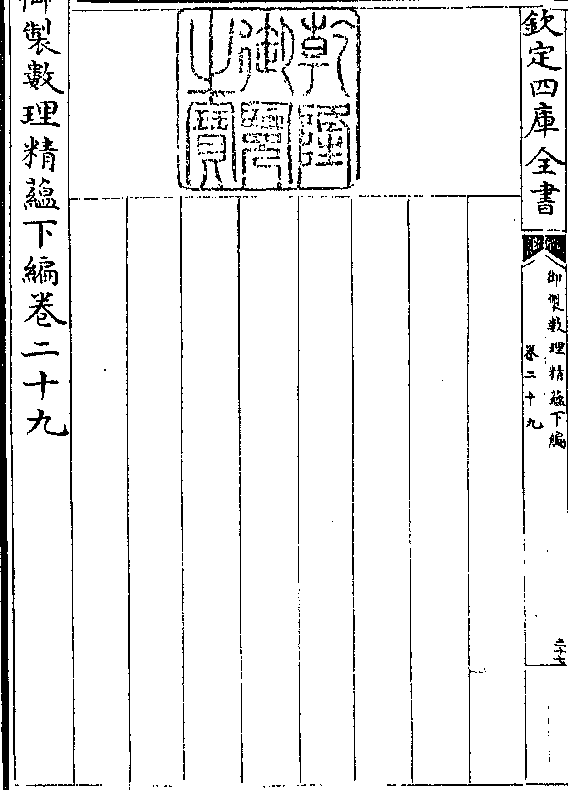 欽定四庫全書
御製數理精蘊下編
卷二十九
二十七
乾隆御覽之寶
御製數理精蘊下編卷二十九